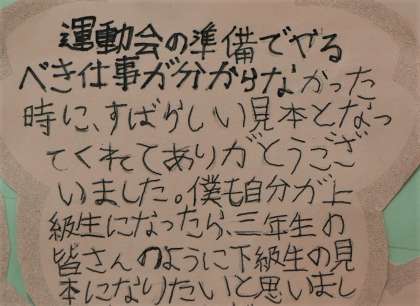 運動会の準備でやる
べき仕事が分からなかった
時に、すばらしい見本となっ
てくれてありがとうござ
いました。僕も自分が上
級生になったら、三年生の
皆さんのように下級生の見
本になりたいと思いまし